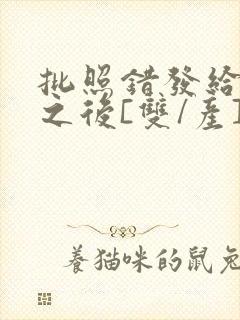 批照錯發給
之後[雙/產]
養貓咪的鼠兔